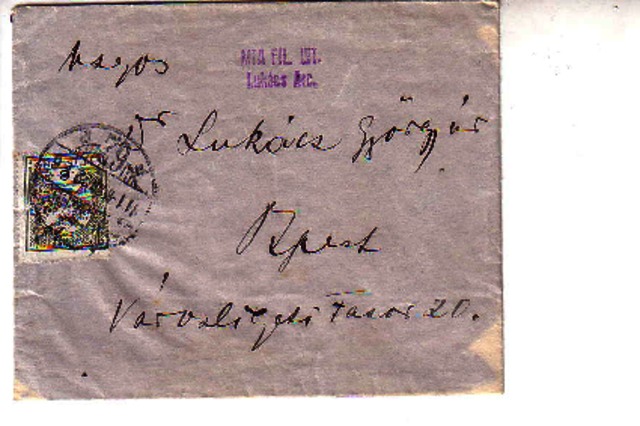 MTA FIL. INT.
Lukács Arc.
Dr Lukács György úr
Bpest
Városligeti fasor 20.